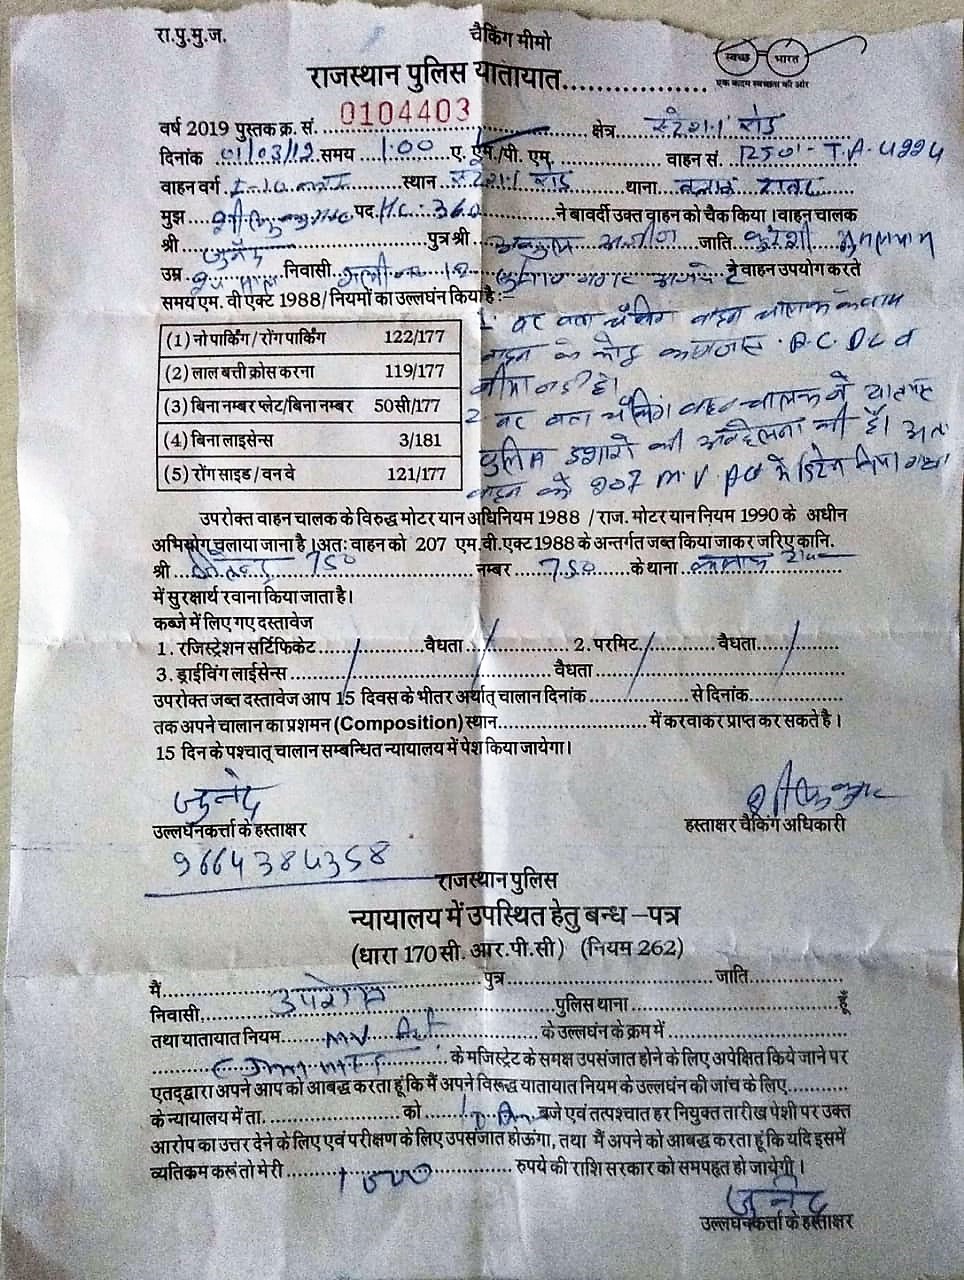 रा.पु.मु.ज. चैकिंग मीमो
स्वच्छ भारत
एक कदम स्वच्छता की ओर
राजस्थान पुलिस यातायात........................
वर्ष 2019 पुस्तक क्र. सं. 0104403 क्षेत्र स्टेशन रोड
दिनांक 01/03/19 समय 1:00 ए. एम./पी. एम. वाहन सं.
वाहन वर्ग स्थान स्टेशन रोड थाना
मुझ पद H.C. 360 ने बावर्दी उक्त वाहन को चैक किया । वाहन चालक
श्री जुनेद पुत्र श्री जाति कुरेशी मुसलमान
उम्र निवासी ने वाहन उपयोग करते
समय एम. वी एक्ट 1988/ नियमों का उल्लघंन किया है :-
(1) नो पार्किंग / रोंग पार्किंग 122/177
(2) लाल बत्ती क्रोस करना 119/177
(3) बिना नम्बर प्लेट/बिना नम्बर 50सी/177
(4) बिना लाइसेन्स 3/181
(5) रोंग साइड / वन वे 121/177
1. वक्त चैकिंग वाहन चालक के पास
वाहन के कोई कागजात R.C. D.L व
बीमा नहीं है।
2 वक्त चैकिंग वाहन चालक ने यातायात
पुलिस इशारो की अवहेलना की है। अतः
वाहन को 207 M.V. Act में डिटेन किया गया।
उपरोक्त वाहन चालक के विरुद्ध मोटर यान अधिनियम 1988 / राज. मोटर यान नियम 1990 के अधीन
अभियोग चलाया जाना है । अतः वाहन को 207 एम.वी.एक्ट 1988 के अन्तर्गत जब्त किया जाकर जरिए कानि.
श्री 750 नम्बर 750 के थाना
में सुरक्षार्थ रवाना किया जाता है।
कब्जे में लिए गए दस्तावेज
1. रजिस्ट्रेशन सर्टिफिकेट वैधता 2. परमिट वैधता
3. ड्राईविंग लाईसेन्स वैधता
उपरोक्त जब्त दस्तावेज आप 15 दिवस के भीतर अर्थात् चालान दिनांक से दिनांक
तक अपने चालान का प्रशमन (Composition) स्थान में करवाकर प्राप्त कर सकते है ।
15 दिन के पश्चात् चालान सम्बन्धित न्यायालय में पेश किया जायेगा।
जुनेद
उल्लघंनकर्त्ता के हस्ताक्षर हस्ताक्षर चैकिंग अधिकारी
9664384358
राजस्थान पुलिस
न्यायालय में उपस्थित हेतु बन्ध –पत्र
(धारा 170 सी. आर.पी.सी) (नियम 262)
मैं उपरोक्त पुत्र जाति
निवासी पुलिस थाना हूँ
तथा यातायात नियम MV Act के उल्लघंन के क्रम में
के मजिस्ट्रेट के समक्ष उपसंजात होने के लिए अपेक्षित किये जाने पर
एतद्द्वारा अपने आप को आबद्ध करता हूं कि मैं अपने विरूद्ध यातायात नियम के उल्लघंन की जांच के लिए
के न्यायालय में ता. को बजे एवं तत्पश्चात हर नियुक्त तारीख पेशी पर उक्त
आरोप का उत्तर देने के लिए एवं परीक्षण के लिए उपसंजात होऊंगा, तथा मैं अपने को आबद्ध करता हूं कि यदि इसमें
व्यतिक्रम करूं तो मेरी रुपये की राशि सरकार को समपहृत हो जायेगी ।
जुनेद
उल्लघंनकर्त्ता के हस्ताक्षर